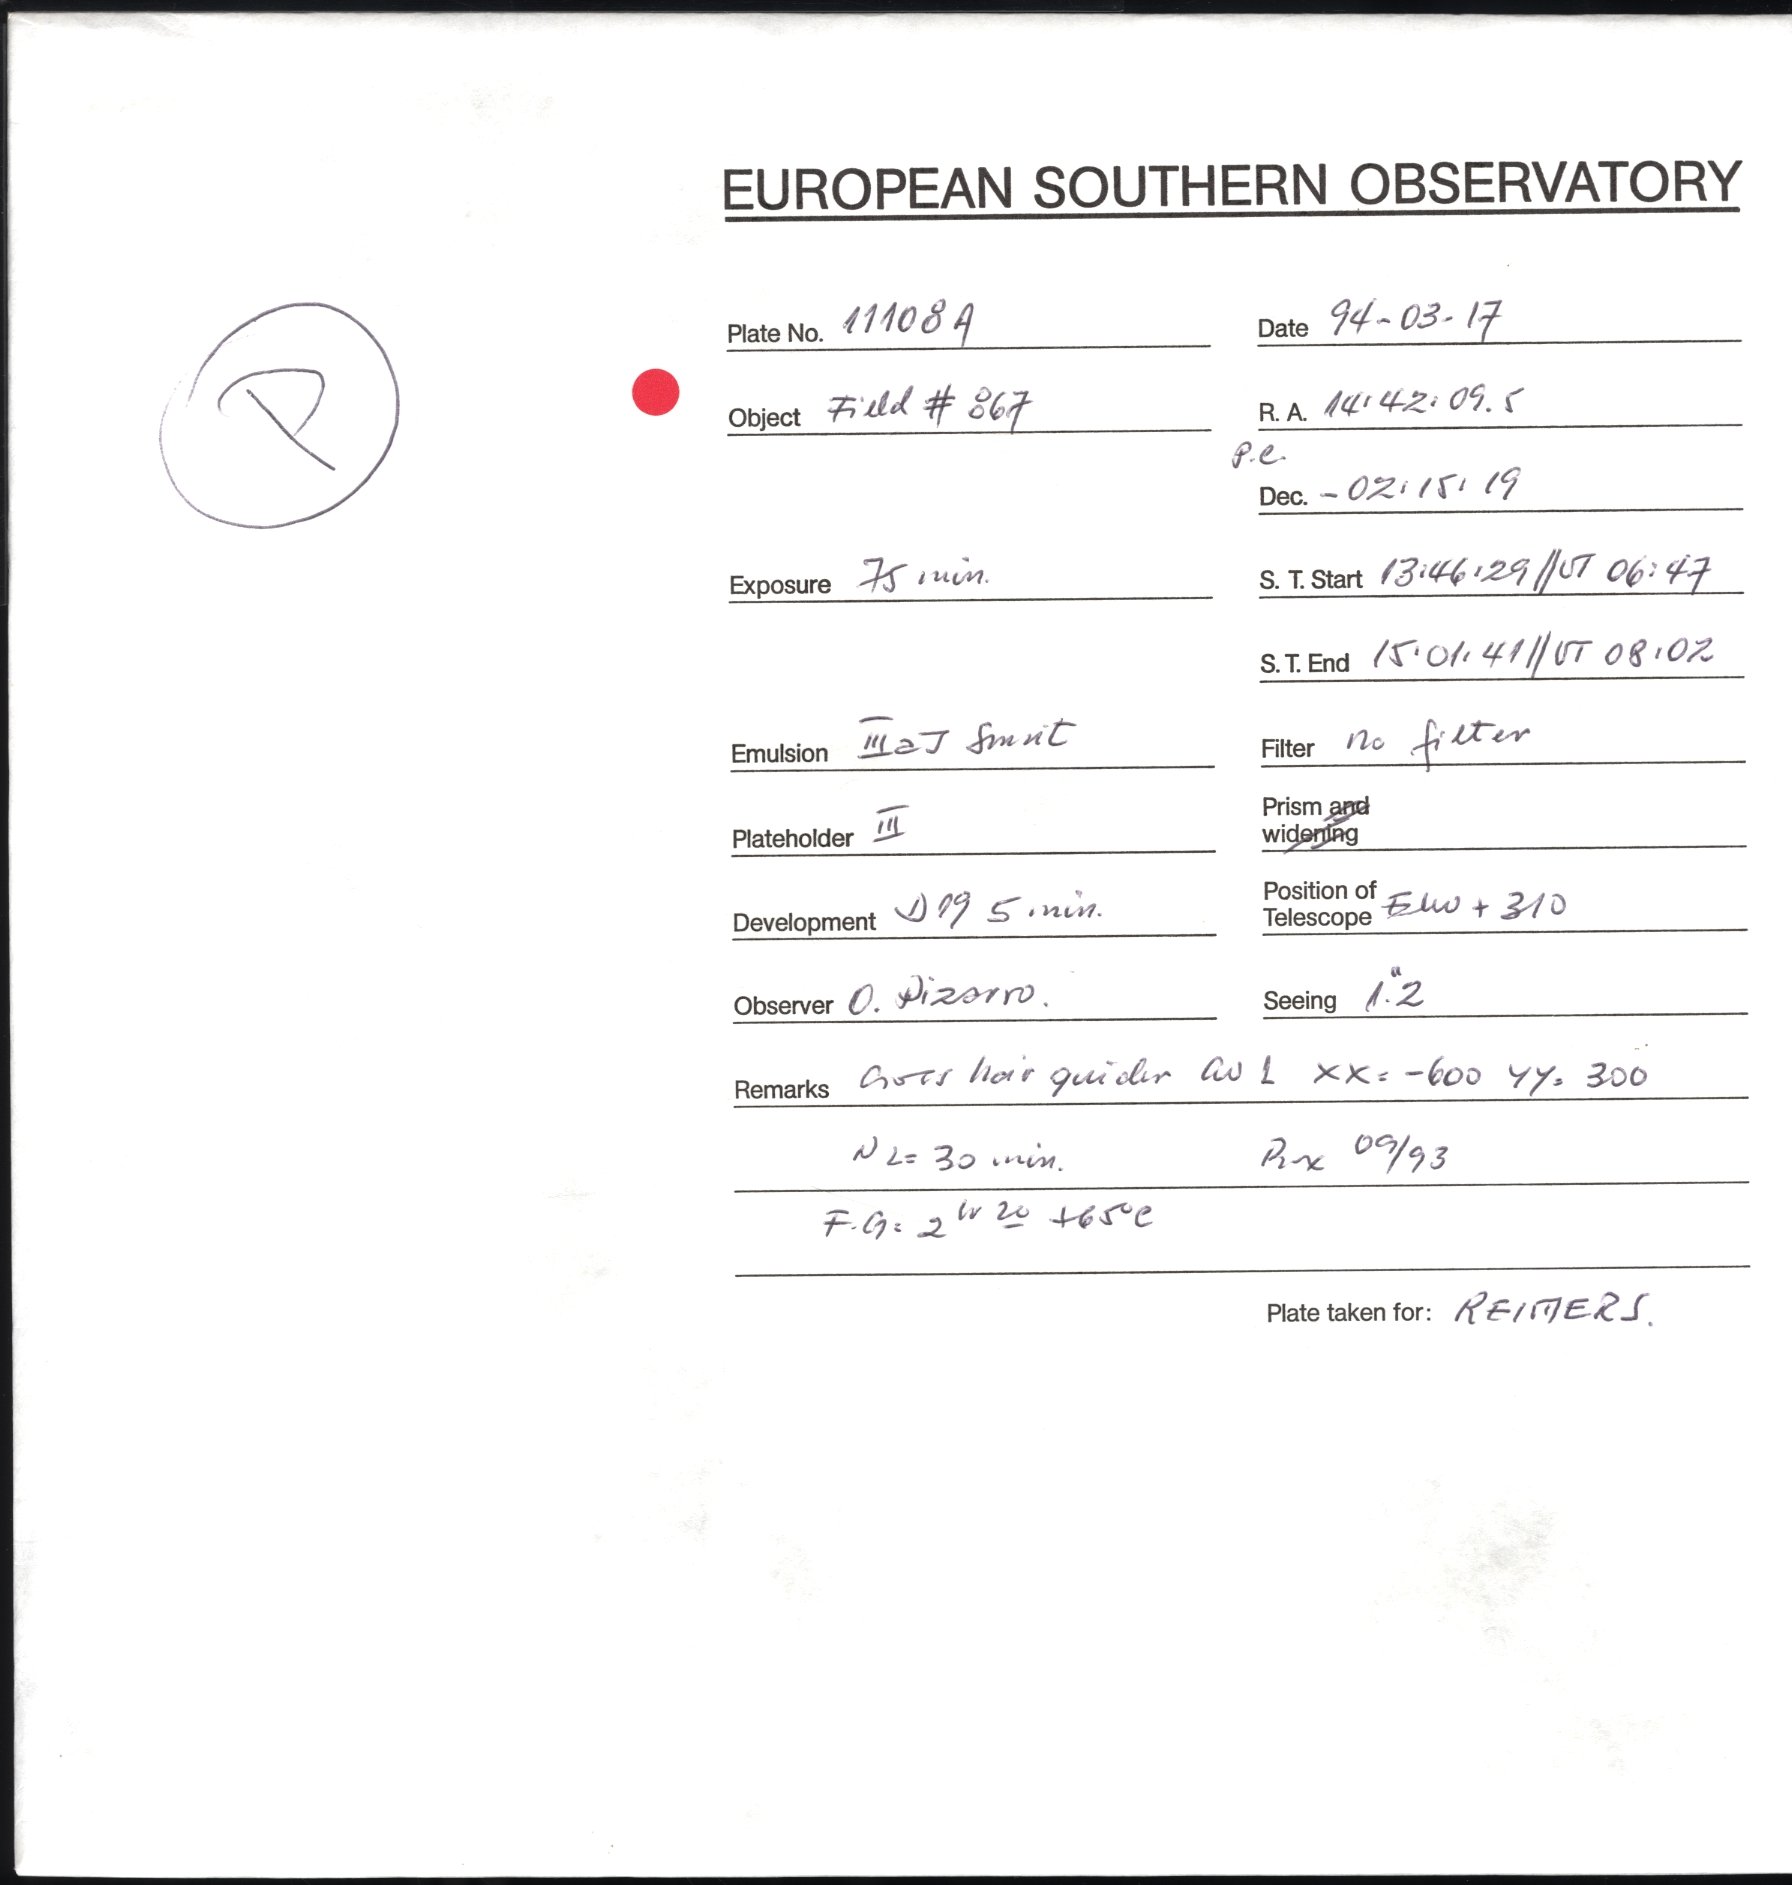 EUROPEAN SOUTHERN OBSERVATORY
P
Plate No. 11108A Date 94-03-17
Object Field # 867 R. A. 14:42:09.5
P.C.
Dec. -02:15:19
Exposure 75 min. S. T. Start 13:46:29//UT 06:47
S. T. End 15:01:41//UT 08:02
Emulsion IIIaJ Filter no filter
Plateholder III Prism and
widening
Development D19 5 min. Position of
Telescope + 310
Observer O. Pizarro. Seeing 1."2
Remarks Cross hair guider XX= -600 YY= 300
NL= 30 min. 09/93
F.G= 2 20 +65°C
Plate taken for: REIMERS.